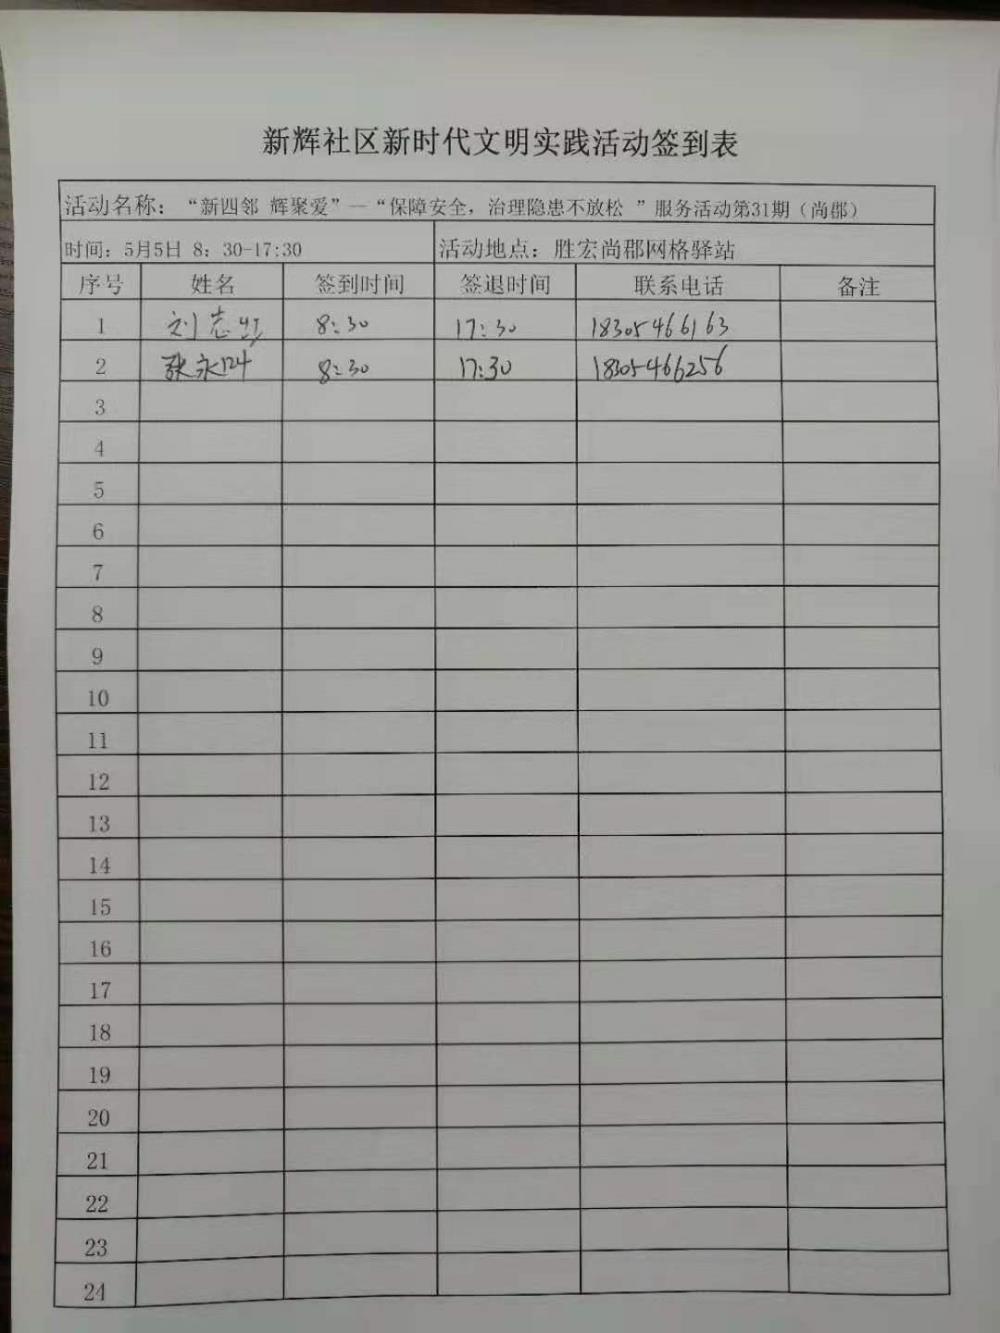 新辉社区新时代文明实践活动签到表
活动名称：“新四邻 辉聚爱”—“保障安全，治理隐患不放松 ”服务活动第31期（尚郡）
时间：5月5日 8：30-17:30 活动地点：胜宏尚郡网格驿站
序号 姓名 签到时间 签退时间 联系电话 备注
1 刘志虹 8:30 17:30 18305466163
2 张永 8:30 17:30 18305466256
3
4
5
6
7
8
9
10
11
12
13
14
15
16
17
18
19
20
21
22
23
24